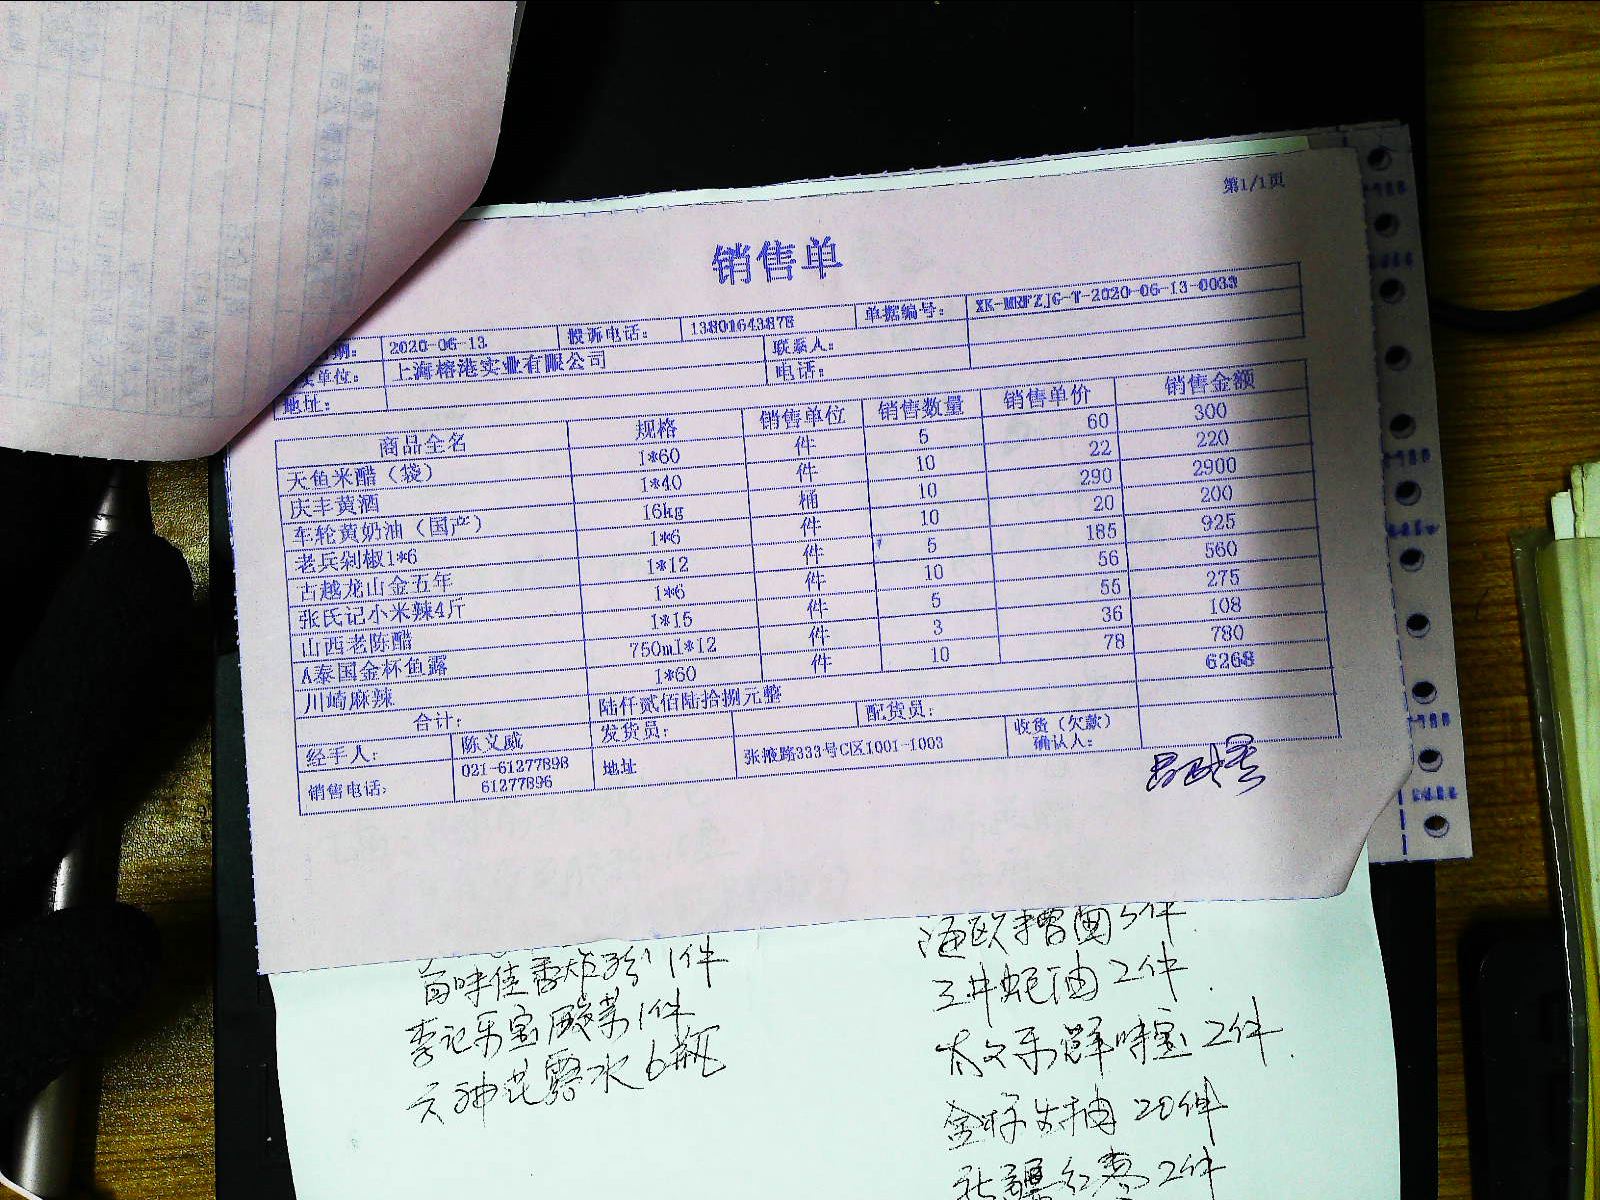 第1/1页
销售单
期： 2020-06-13 投诉电话： 13801643878 单据编号： XK-MRFZJG-T-2020-06-13-0033
单位： 上海榕港实业有限公司 联系人：
地址： 电话：
商品全名 规格 销售单位 销售数量 销售单价 销售金额
天鱼米醋（袋） 1*60 件 5 60 300
庆丰黄酒 1*40 件 10 22 220
车轮黄奶油（国产） 16kg 桶 10 290 2900
老兵剁椒1*6 1*6 件 10 20 200
古越龙山金五年 1*12 件 5 185 925
张氏记小米辣4斤 1*6 件 10 56 560
山西老陈醋 1*15 件 5 55 275
A泰国金杯鱼露 750ml*12 件 3 36 108
川崎麻辣 1*60 件 10 78 780
合计： 陆仟贰佰陆拾捌元整 6268
经手人： 陈文威 发货员： 配货员：
销售电话： 021-61277898 61277896 地址 张掖路333号C区1001-1003 收货（欠款）确认人：
百味佳香炸粉1件
李记乐宝酸菜1件
六神花露水6瓶
三井蚝油2件
太太乐鲜味宝2件
金标生抽20件
新疆红枣2件